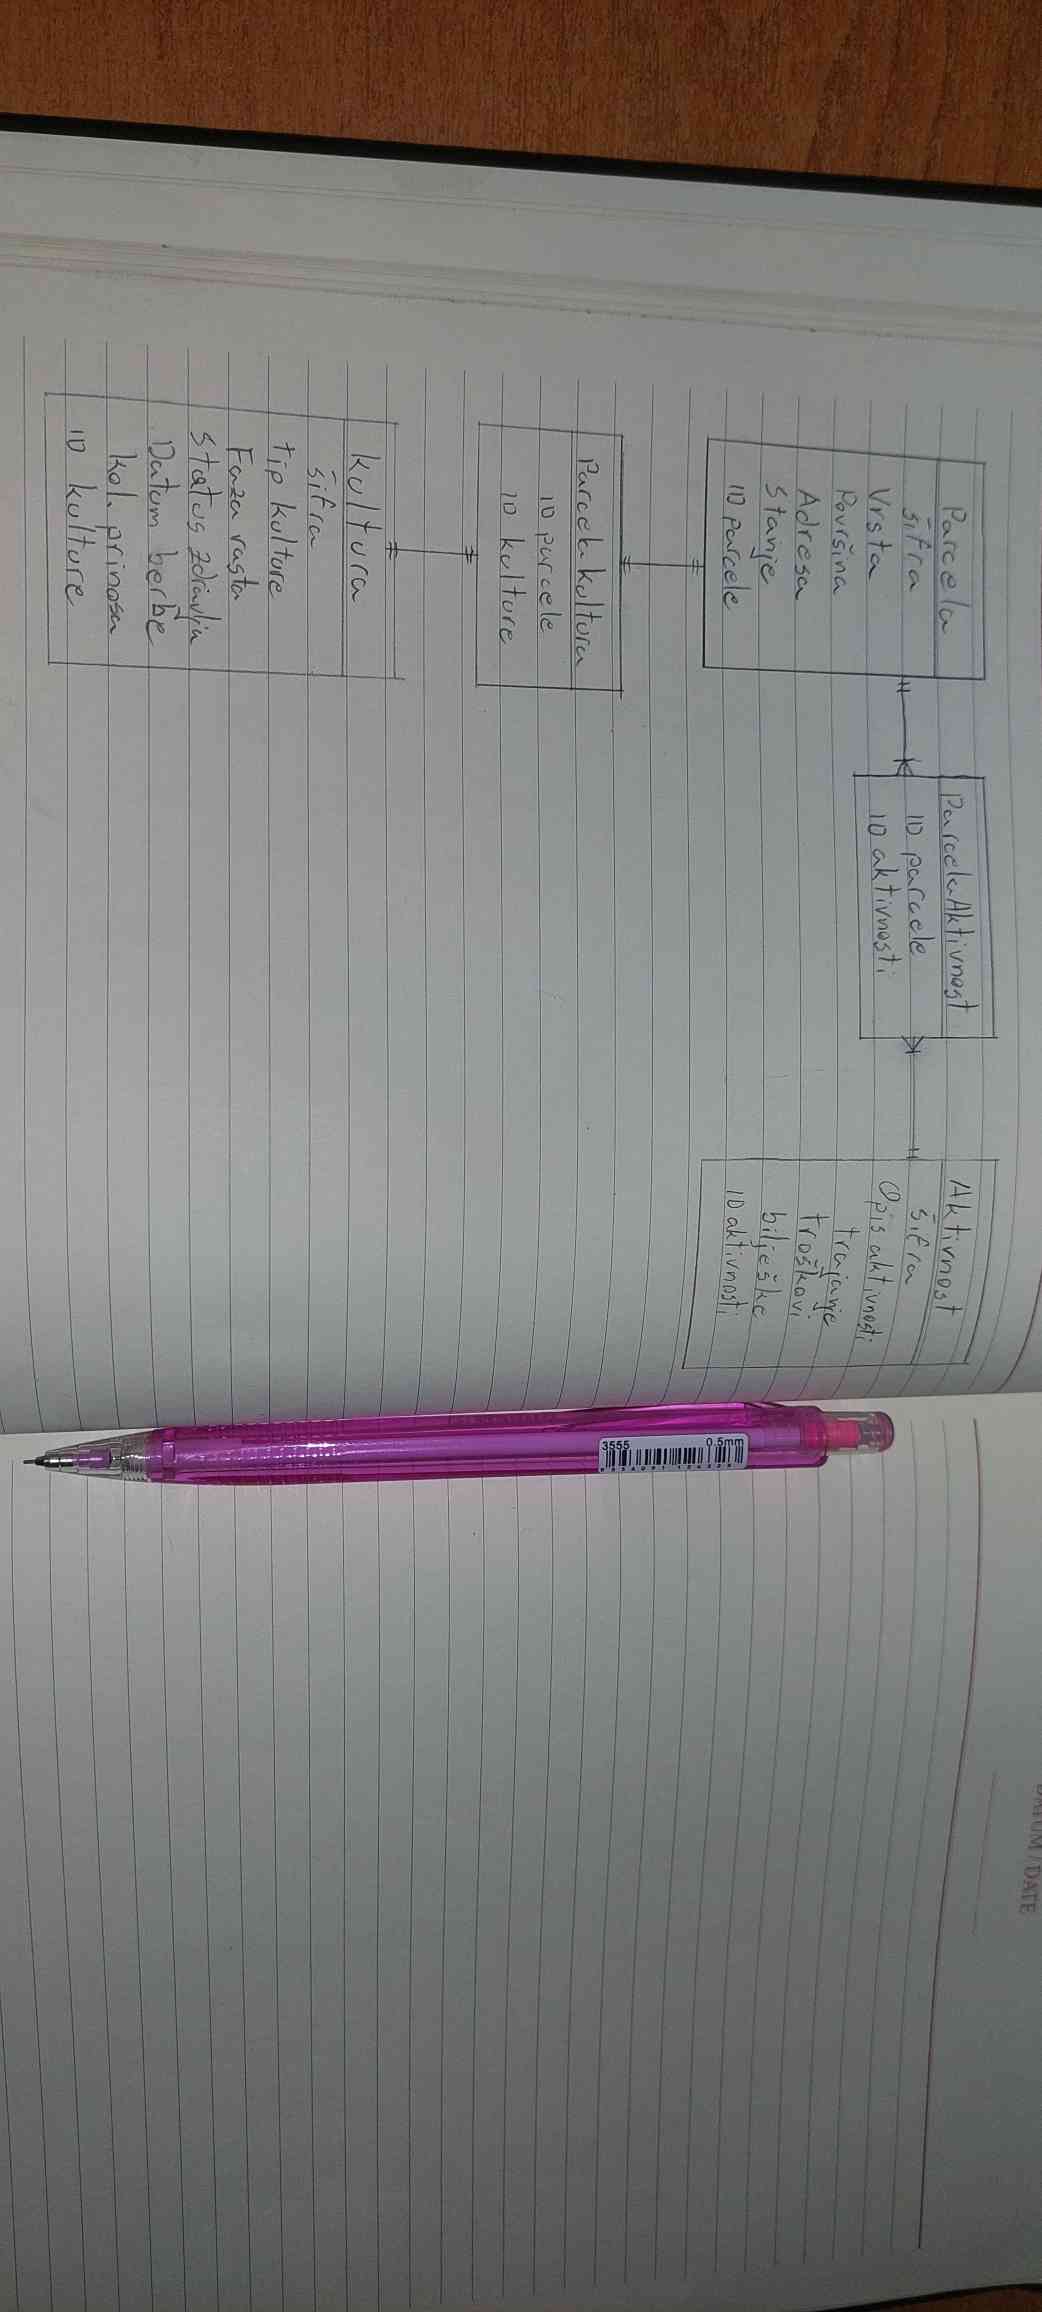 Parcela
šifra
Vrsta
Površina
Adresa
Stanje
ID parcele
ParcelaAktivnost
ID parcele
ID aktivnosti
Aktivnost
šifra
Opis aktivnosti
trajanje
troškovi
bilješke
ID aktivnosti
Parcelakultura
ID parcele
ID kulture
kultura
šifra
tip kulture
Faza rasta
Status zdravlja
Datum berbe
kol. prinosa
ID kulture
3555 0.5mm
DATUM/DATE